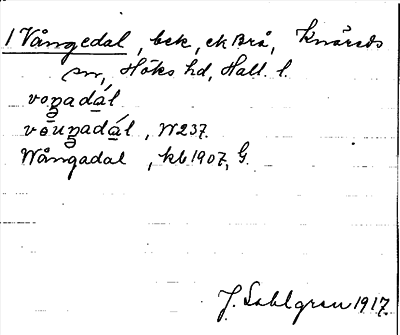 1 Vångedal, bek, ek Brå, Knäreds
sn, Höks hd, Hall. l.
voŋadál
vo͡uŋadál, W237.
Wångadal, kb1907, G.
J. Sahlgren 1917.